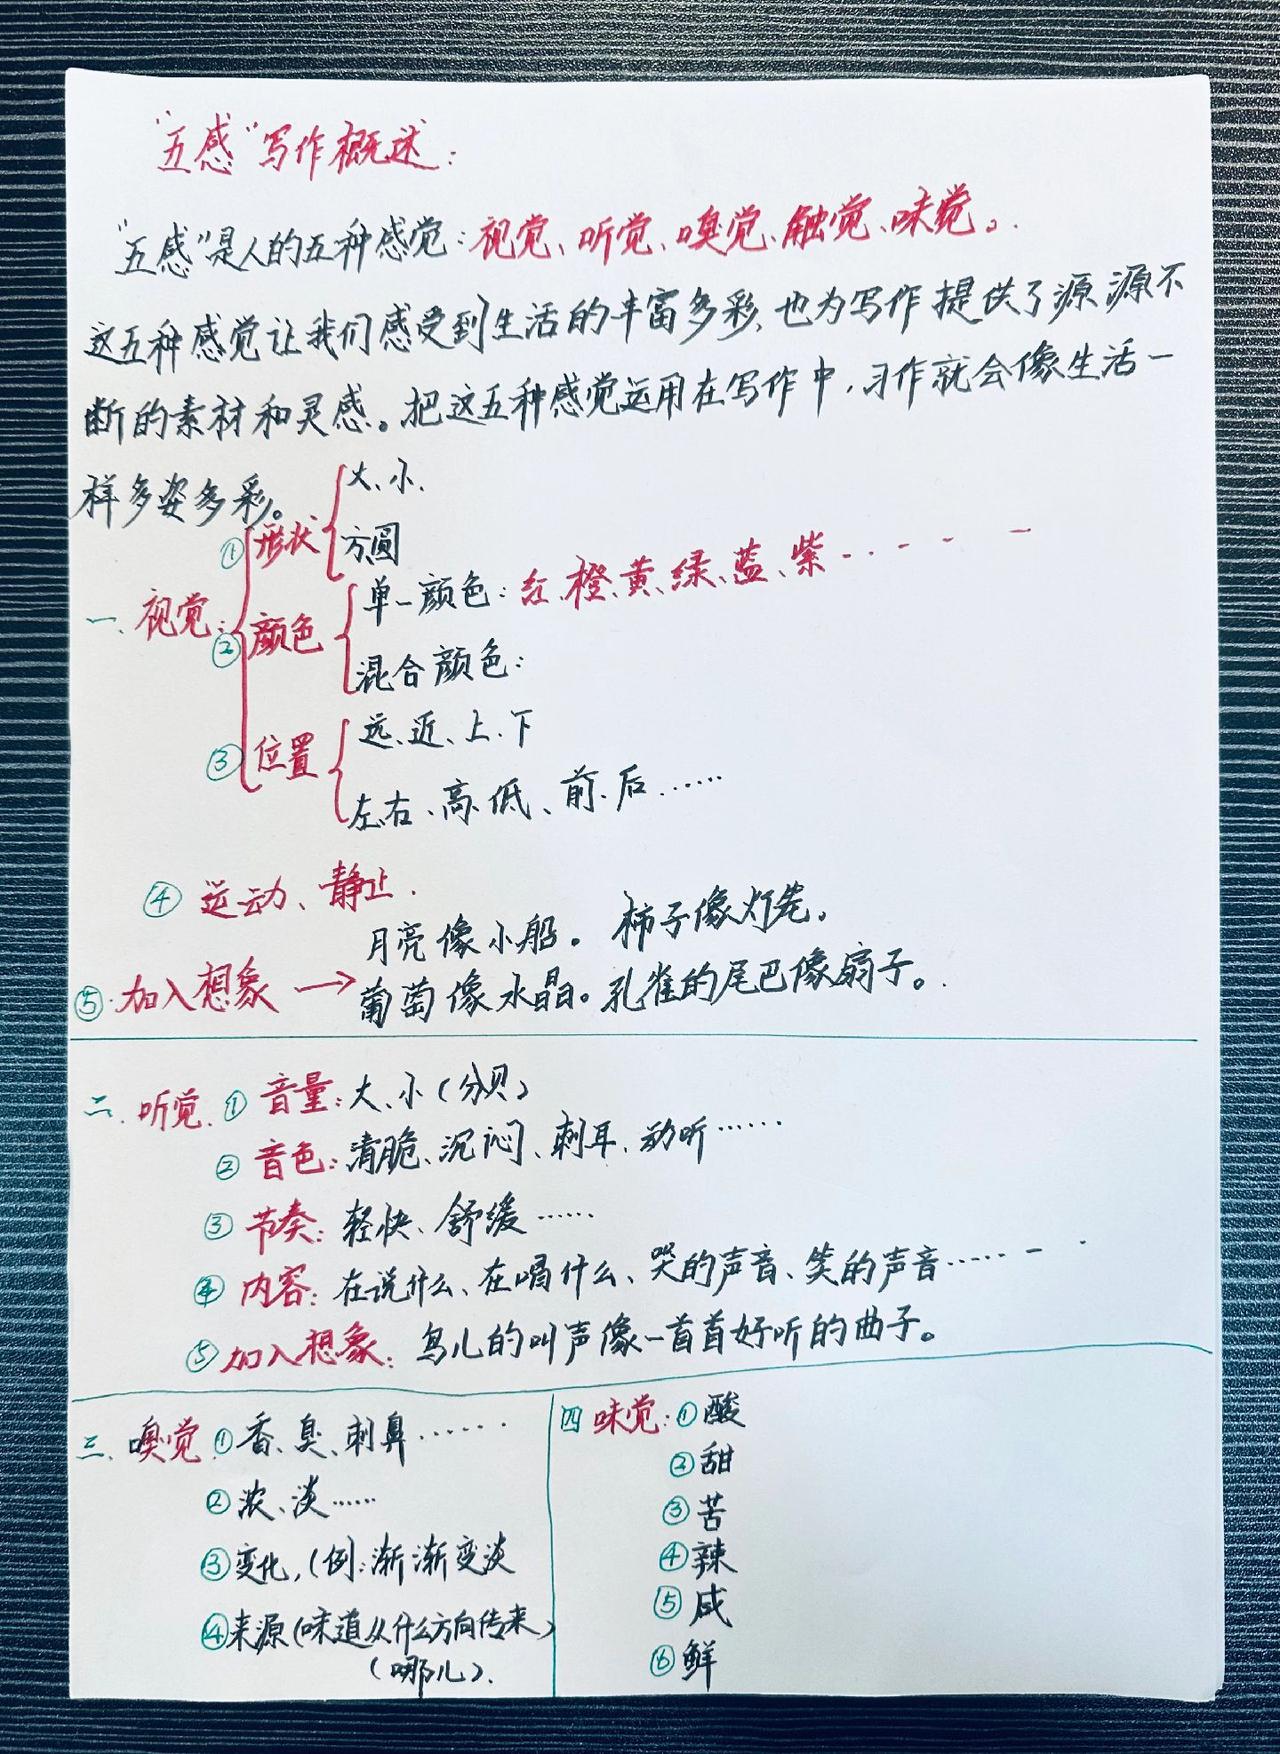 “五感”写作概述：
“五感”是人的五种感觉：视觉、听觉、嗅觉、触觉、味觉。
这五种感觉让我们感受到生活的丰富多彩，也为写作提供了源源不
断的素材和灵感。把这五种感觉运用在写作中，习作就会像生活一
样多姿多彩。
一、视觉：
①形状
大、小、
方、圆
②颜色
单一颜色：红、橙、黄、绿、蓝、紫……
混合颜色：
③位置
远、近、上、下
左、右、高、低、前、后……
④运动、静止.
⑤加入想象→
月亮像小船。柿子像灯笼。
葡萄像水晶。孔雀的尾巴像扇子。
二、听觉.①音量：大、小（分贝）
②音色：清脆、沉闷、刺耳、动听……
③节奏：轻快、舒缓……
④内容：在说什么、在唱什么、哭的声音、笑的声音……
⑤加入想象：鸟儿的叫声像一首首好听的曲子。
三、嗅觉①香、臭、刺鼻……
②浓、淡……
③变化，（例：渐渐变淡
④来源（味道从什么方向传来）
（哪儿）.
四 味觉：①酸
②甜
③苦
④辣
⑤咸
⑥鲜